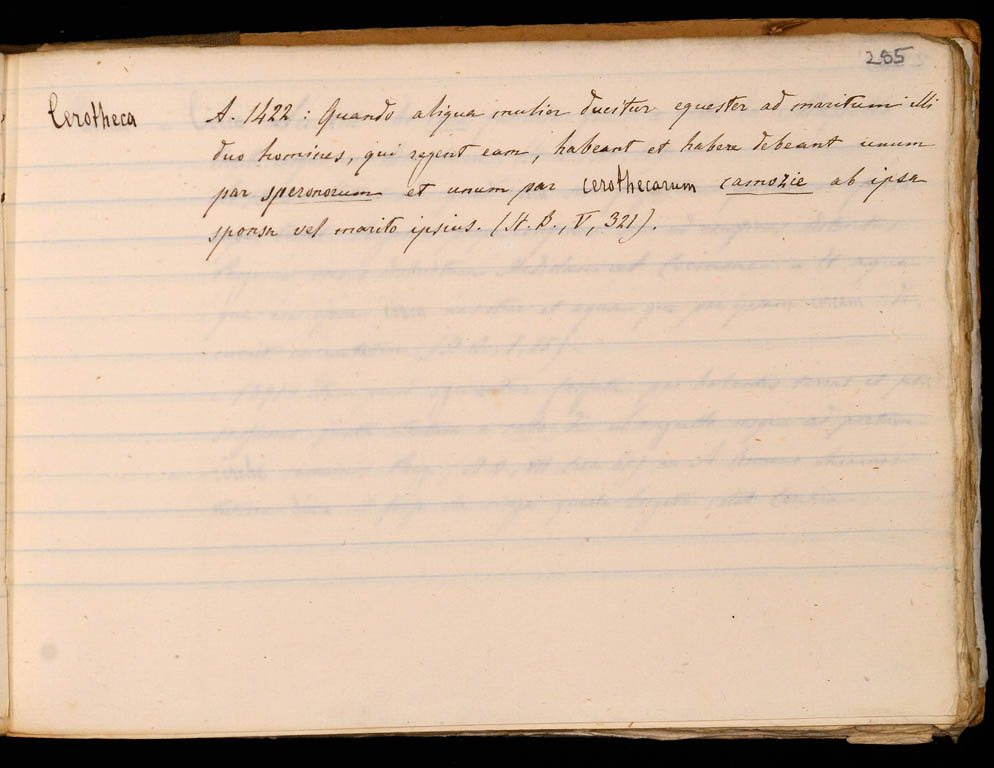 285
Cerotheca
A. 1422 : Quando aliqua mulior ducitur equester ad maritum illi
duo homines, qui regent eam, habeant et habere debeant unum
par speronorum et unum par cerothecarum camozie ab ipsa
sponsa vel marito ipsius. (H. B., V, 321).